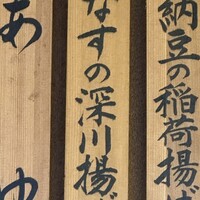 納豆の稲荷揚げ
なすの深川揚げ
あゆ